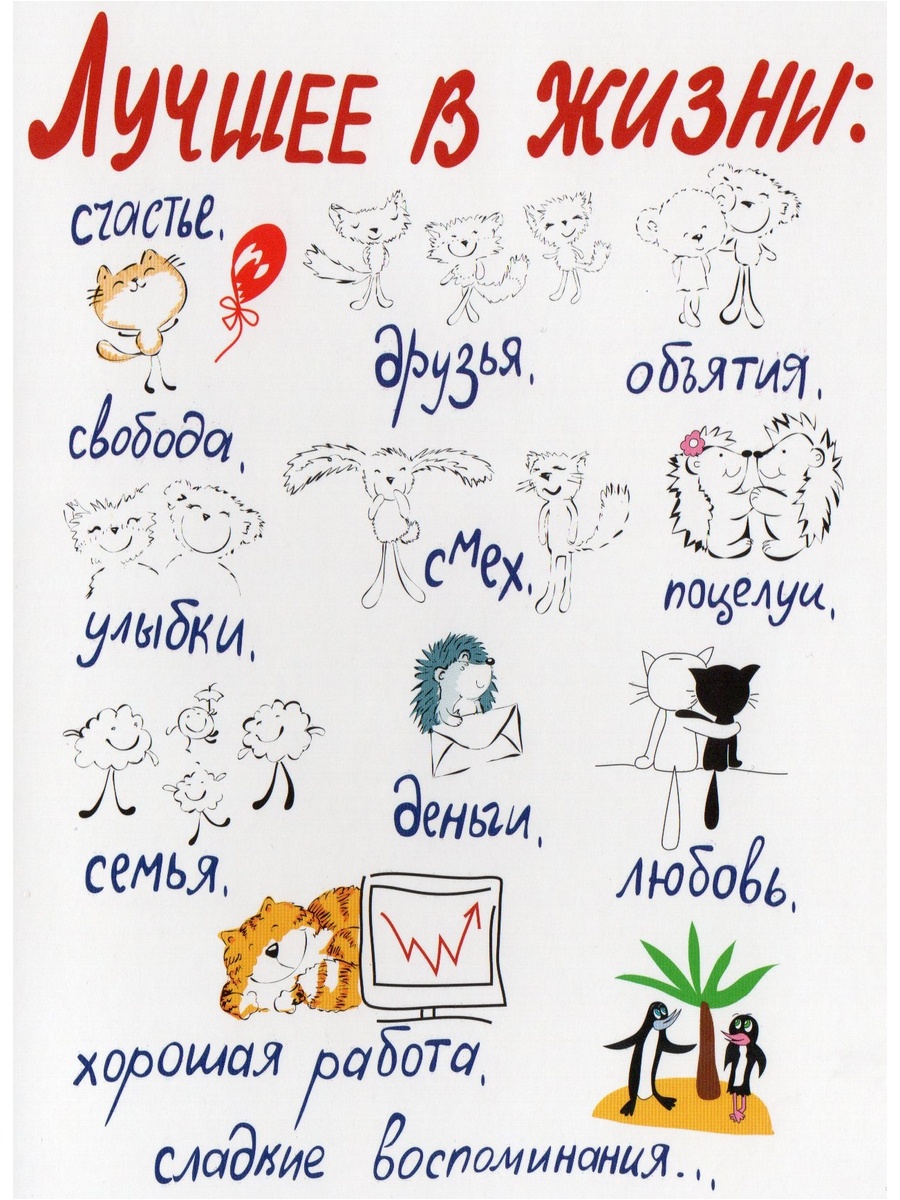 Лучшее в жизни:
счастье,
друзья,
объятия,
свобода,
смех,
поцелуи,
улыбки,
деньги,
семья,
любовь,
хорошая работа,
сладкие воспоминания...